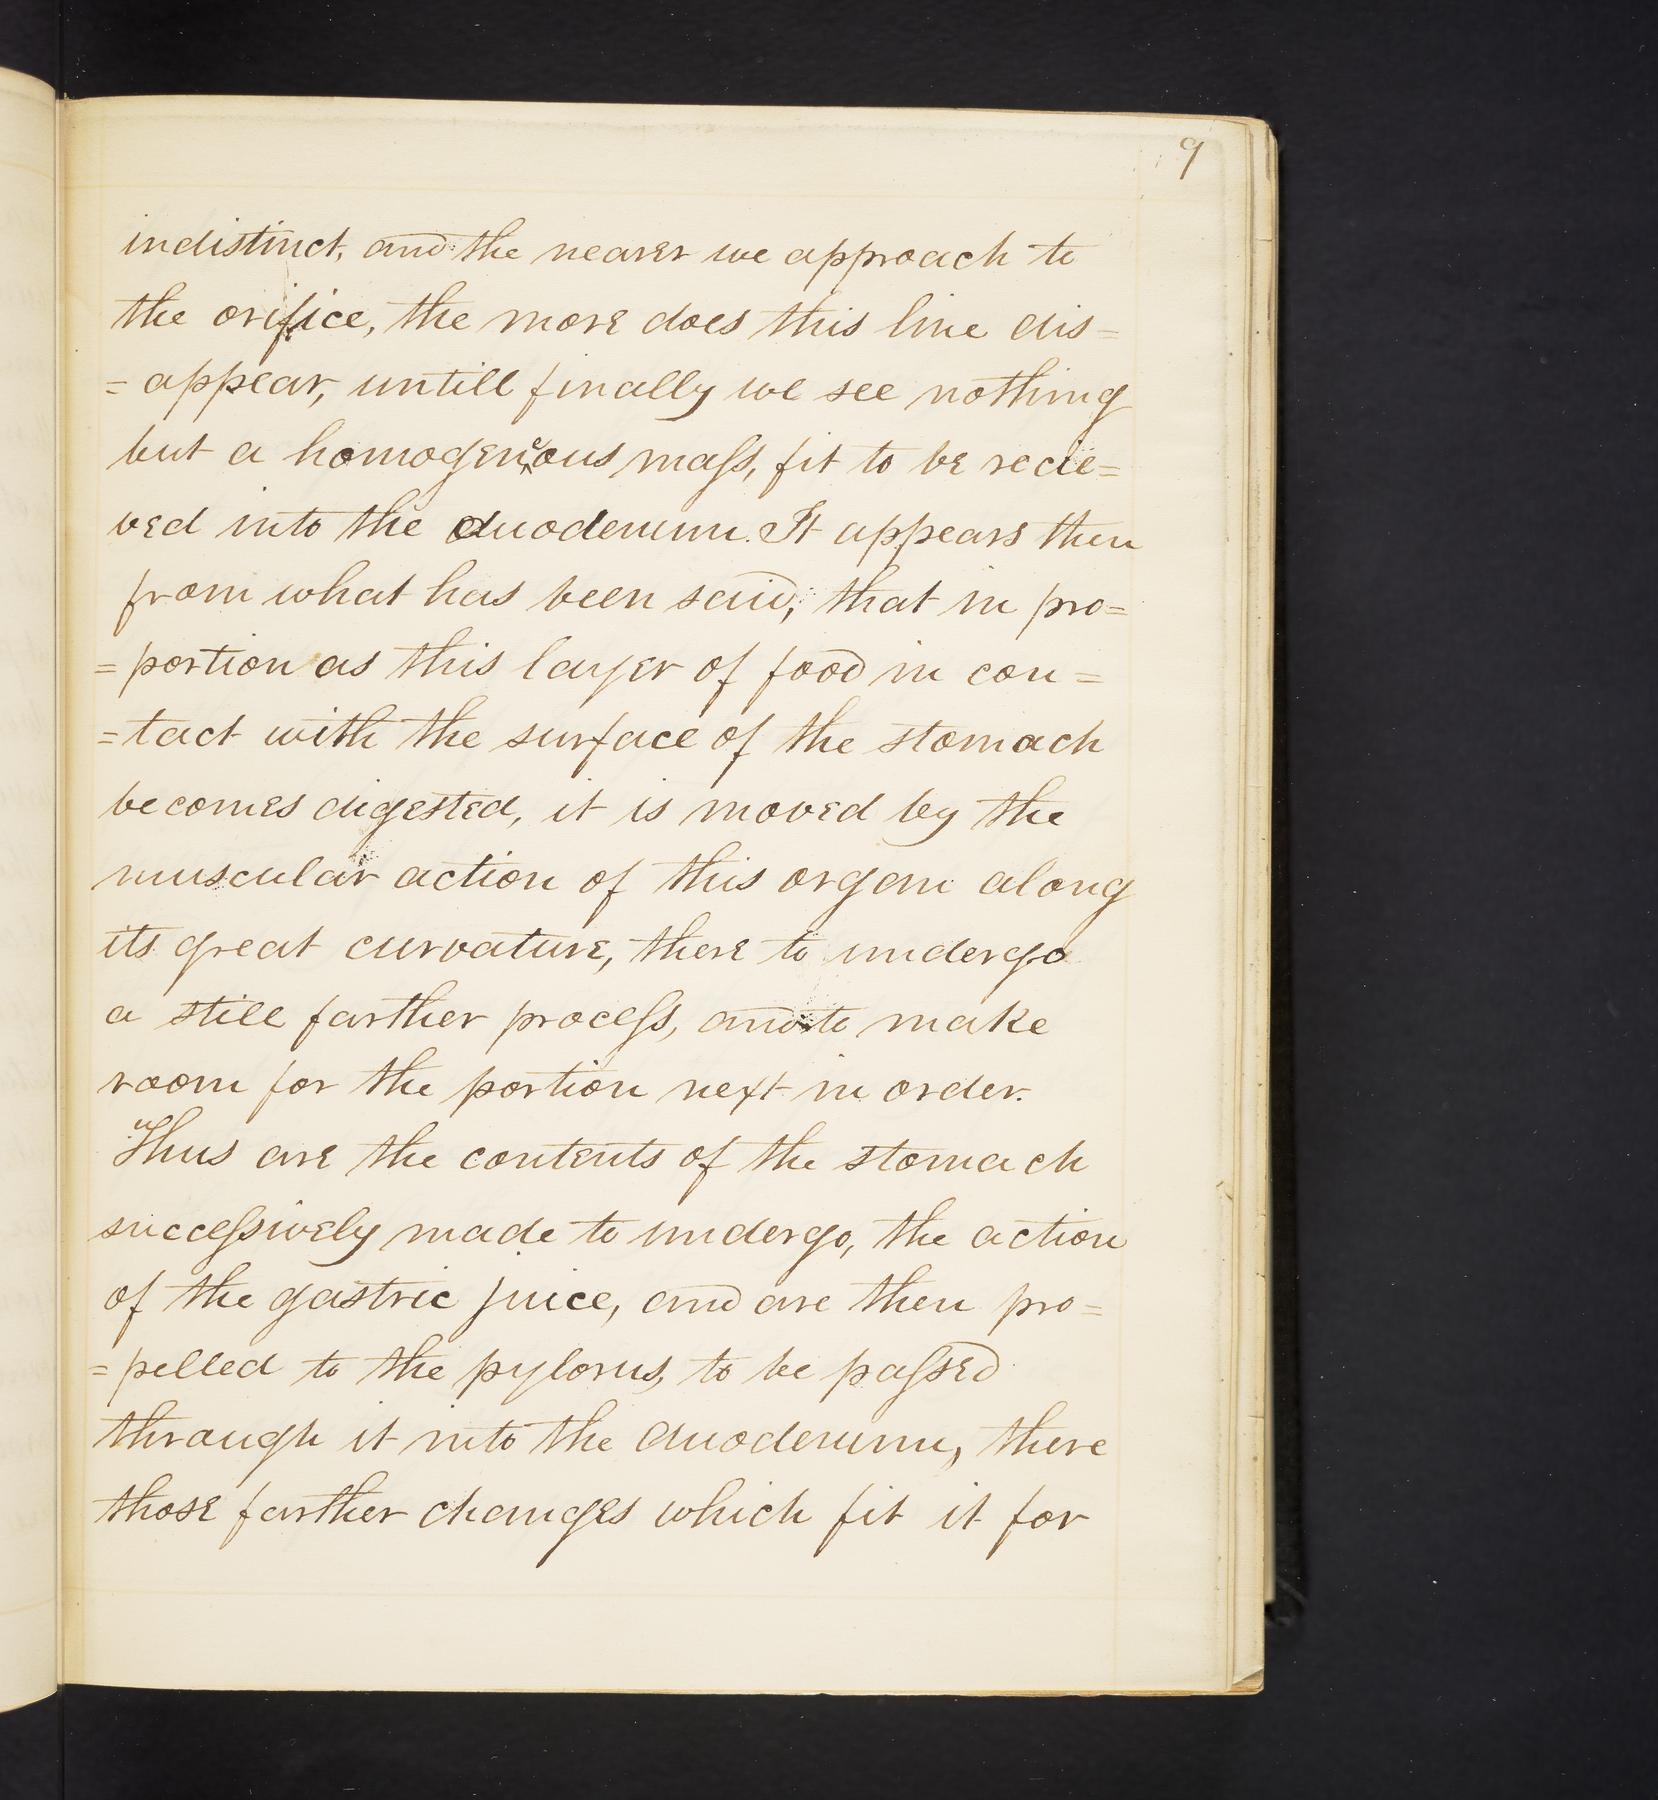 9
indistinct, and the nearer we approach to
the orifice, the more does this line dis=
=appear, untill finally we see nothing
but a homogeneous mass, fit to be recie=
ved into the duodenum. It appears then
from what has been said, that in pro=
=portion as this layer of food in con=
=tact with the surface of the stomach
becomes digested, it is moved by the
muscular action of this organ along
its great curvature, there to undergo
a still farther process, and to make
room for the portion next in order.
"Thus are the contents of the stomach
successively made to undergo, the action
of the gastric juice, and are then pro=
=pelled to the pylorus, to be passed
through it into the duodenum, there
those farther changes which fit it for